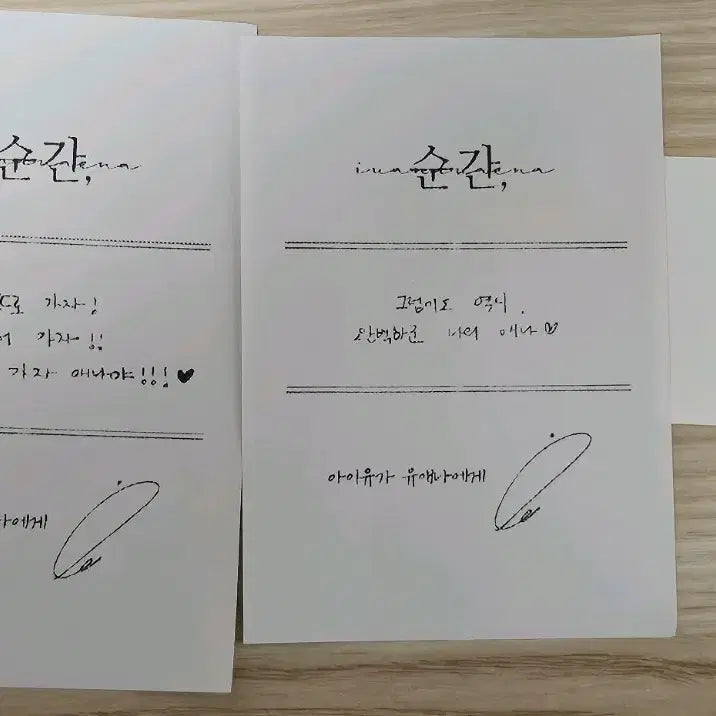 순간,
로 가자!
가자!!
가자 애나야!!! ♥
에게
순간,
iuaena
그럼에도 역시,
완벽하군 나의 애나♡
아이유가 유애나에게